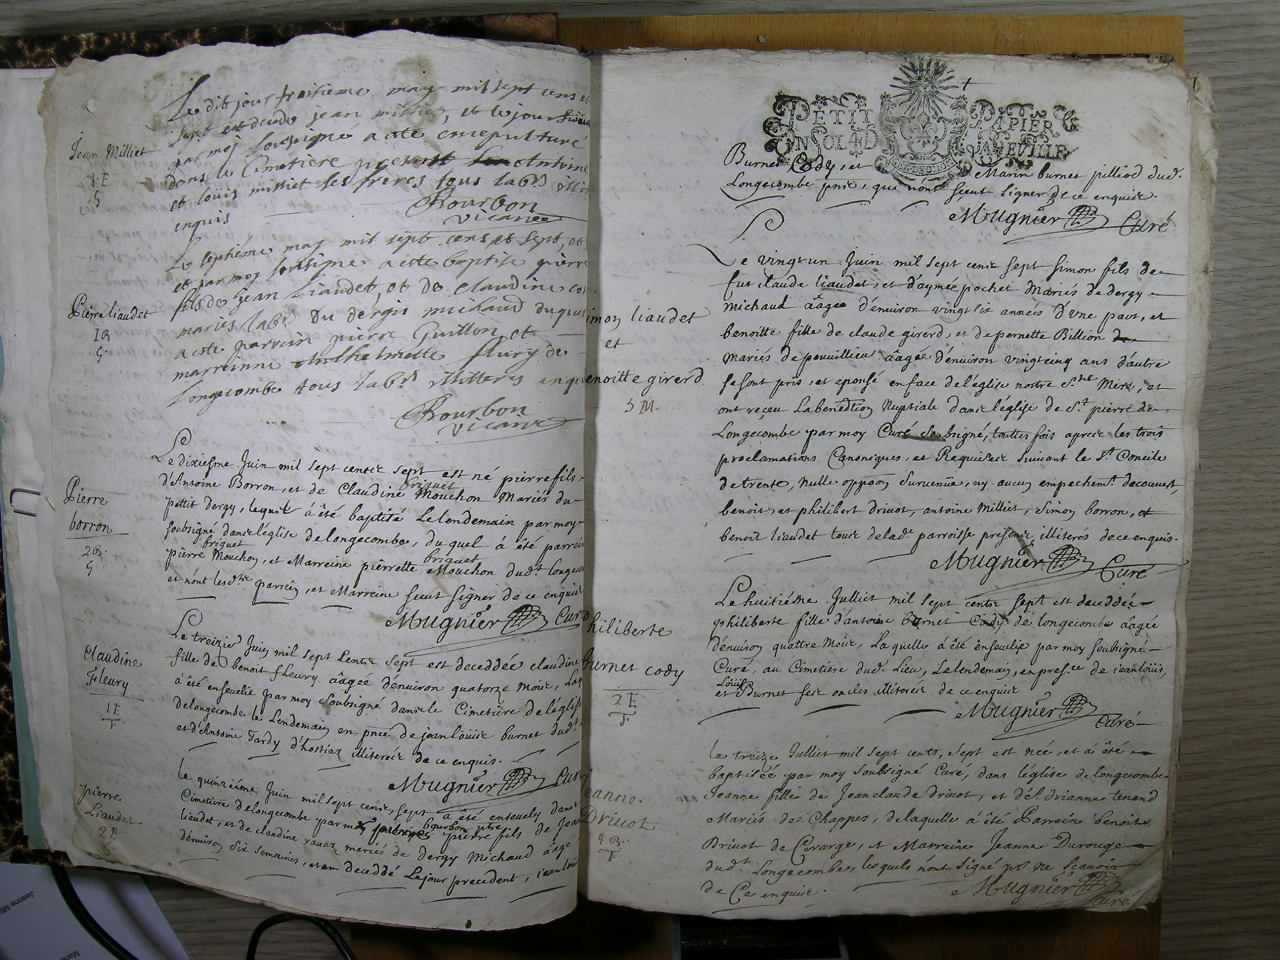 Jean Milliet
1 E
5
Le dit jour troisieme may mil sept cens et
sept est decede jean milliet, et le jour
par moy soussigne a este ensepulture
dans le Cimetiere present Anthoine
et loüis milliet ses freres tous lab.rs
enquis
Bourbon
vicaire
Pierre liaudet
1 B
5
Le septiéme may mil sept cens et sept, est
et par moy soussigne a este baptise pierre
fils de jean Liaudet, et de Claudine
mariés lab.rs Du dergis michaud
a este parrein pierre Guillon, et
marrienne Fleury de
Longecombe tous lab.rs illitteres enquis
Bourbon
vicaire
Pierre
borron
2 B
5
Le dixiesme Juin mil sept cents sept est né pierre fils
d'Antoine Borron, et de Claudine briquet Mouchon Mariés du
petit dergy, lequel à été baptisé Le lendemain par moy
soubsigné dans l'église de longecombe, du quel à été parrein
pierre briquet Mouchon, et Marreine pierrette briquet Mouchon dud.t longecombe
et n'ont lesd.ts parrein, et Marreine sceut signer de ce enquis
Mugnier Curé
Claudine
Fleury
1 E
Le treizie Juin mil sept cents sept est deceddée claudine
fille de benoit fleury âagée d'énuiron quatorze mois, La
à été enseuelie par moy soubsigné dans le Cimetiere de l'eglise
de longecombe le Lendemain en pnce de jean loüis burnet dud.t
et d'Antoine Tardy d'hostiaz illiterez de ce enquis.
Mugnier Curé
pierre
Liaudet
2 E
le quinziéme Juin mil sept cents, sept à été enseuely dans
Cimetiere de longecombe par moy bourbon ptre pierre fils de Jean
liaudet, et de claudine rauaz mariés de dergy Michaud âagé
dénuiron six semaines, et am deceddé Le jour precedent, jean louis
PETIT PAPIER
Burnet Cody, et Marin burnet pilliod dud.t
Longecombe pnts, qui n'ont sceut signer de ce enquis
Mugnier Curé
Simon liaudet
et
benoitte girerd
5 M.
Le vingtun Juin mil sept cents sept simon fils de
fut claude liaudet, et d'aymee pochet Mariés de dergy
michaud âagée d'énuiron vingt six années d'vne part, et
benoitte fille de claude girerd, et de pernette Billion
Mariés de peuuillieu âagée d'énuiron vingtcinq ans d'autre
se sont pris, et epousé en face de l'église nostre S.te Mere, et
ont receu La benediction Nuptiale dans l'église de S.t pierre de
Longecombe par moy Curé soubsigné, toutes fois apres les trois
proclamations Canoniques, et Requises suiuant le S.t Concile
de trente, nulle oppõon suruenüe, ny aucun empechem.t decouuert,
benoit, et philibert driuot, antoine Milliet, Simon borron, et
benoit liaudet tous de lad. parroisse presents, illiterés de ce enquis.
Mugnier Curé
Philiberte
burnet cody
2 E
Le huitiésme Julliet mil sept cents sept est deceddée
philiberte fille d'antoine burnet Cody de longecombe âagée
dénuiron quattre Mois, Laquelle à été enseuelie par moy soubsigné
Curé, au Cimetiere dud. Lieu, Le lendemain, en pres.ce de jean loüis,
et Loüis Burnet ses oncles illiterés de ce enquis
Mugnier Curé
Jeanne
Driuot
4 B.
le treize Julliet mil sept cents, sept est neé, et à été
baptisée par moy soubsigné Curé, dans l'église de longecombe
Jeanne fille de Jean claude driuot, et d'Adrianne tenand
Mariés de Chappes, de laquelle a été Parrein benoit
Driuot de Cerarge, et Marreine Jeanne Durouge
dud.t Longecombe, lesquels n'ont signé pr ne sçauoir
de Ce enquis.
Mugnier Curé